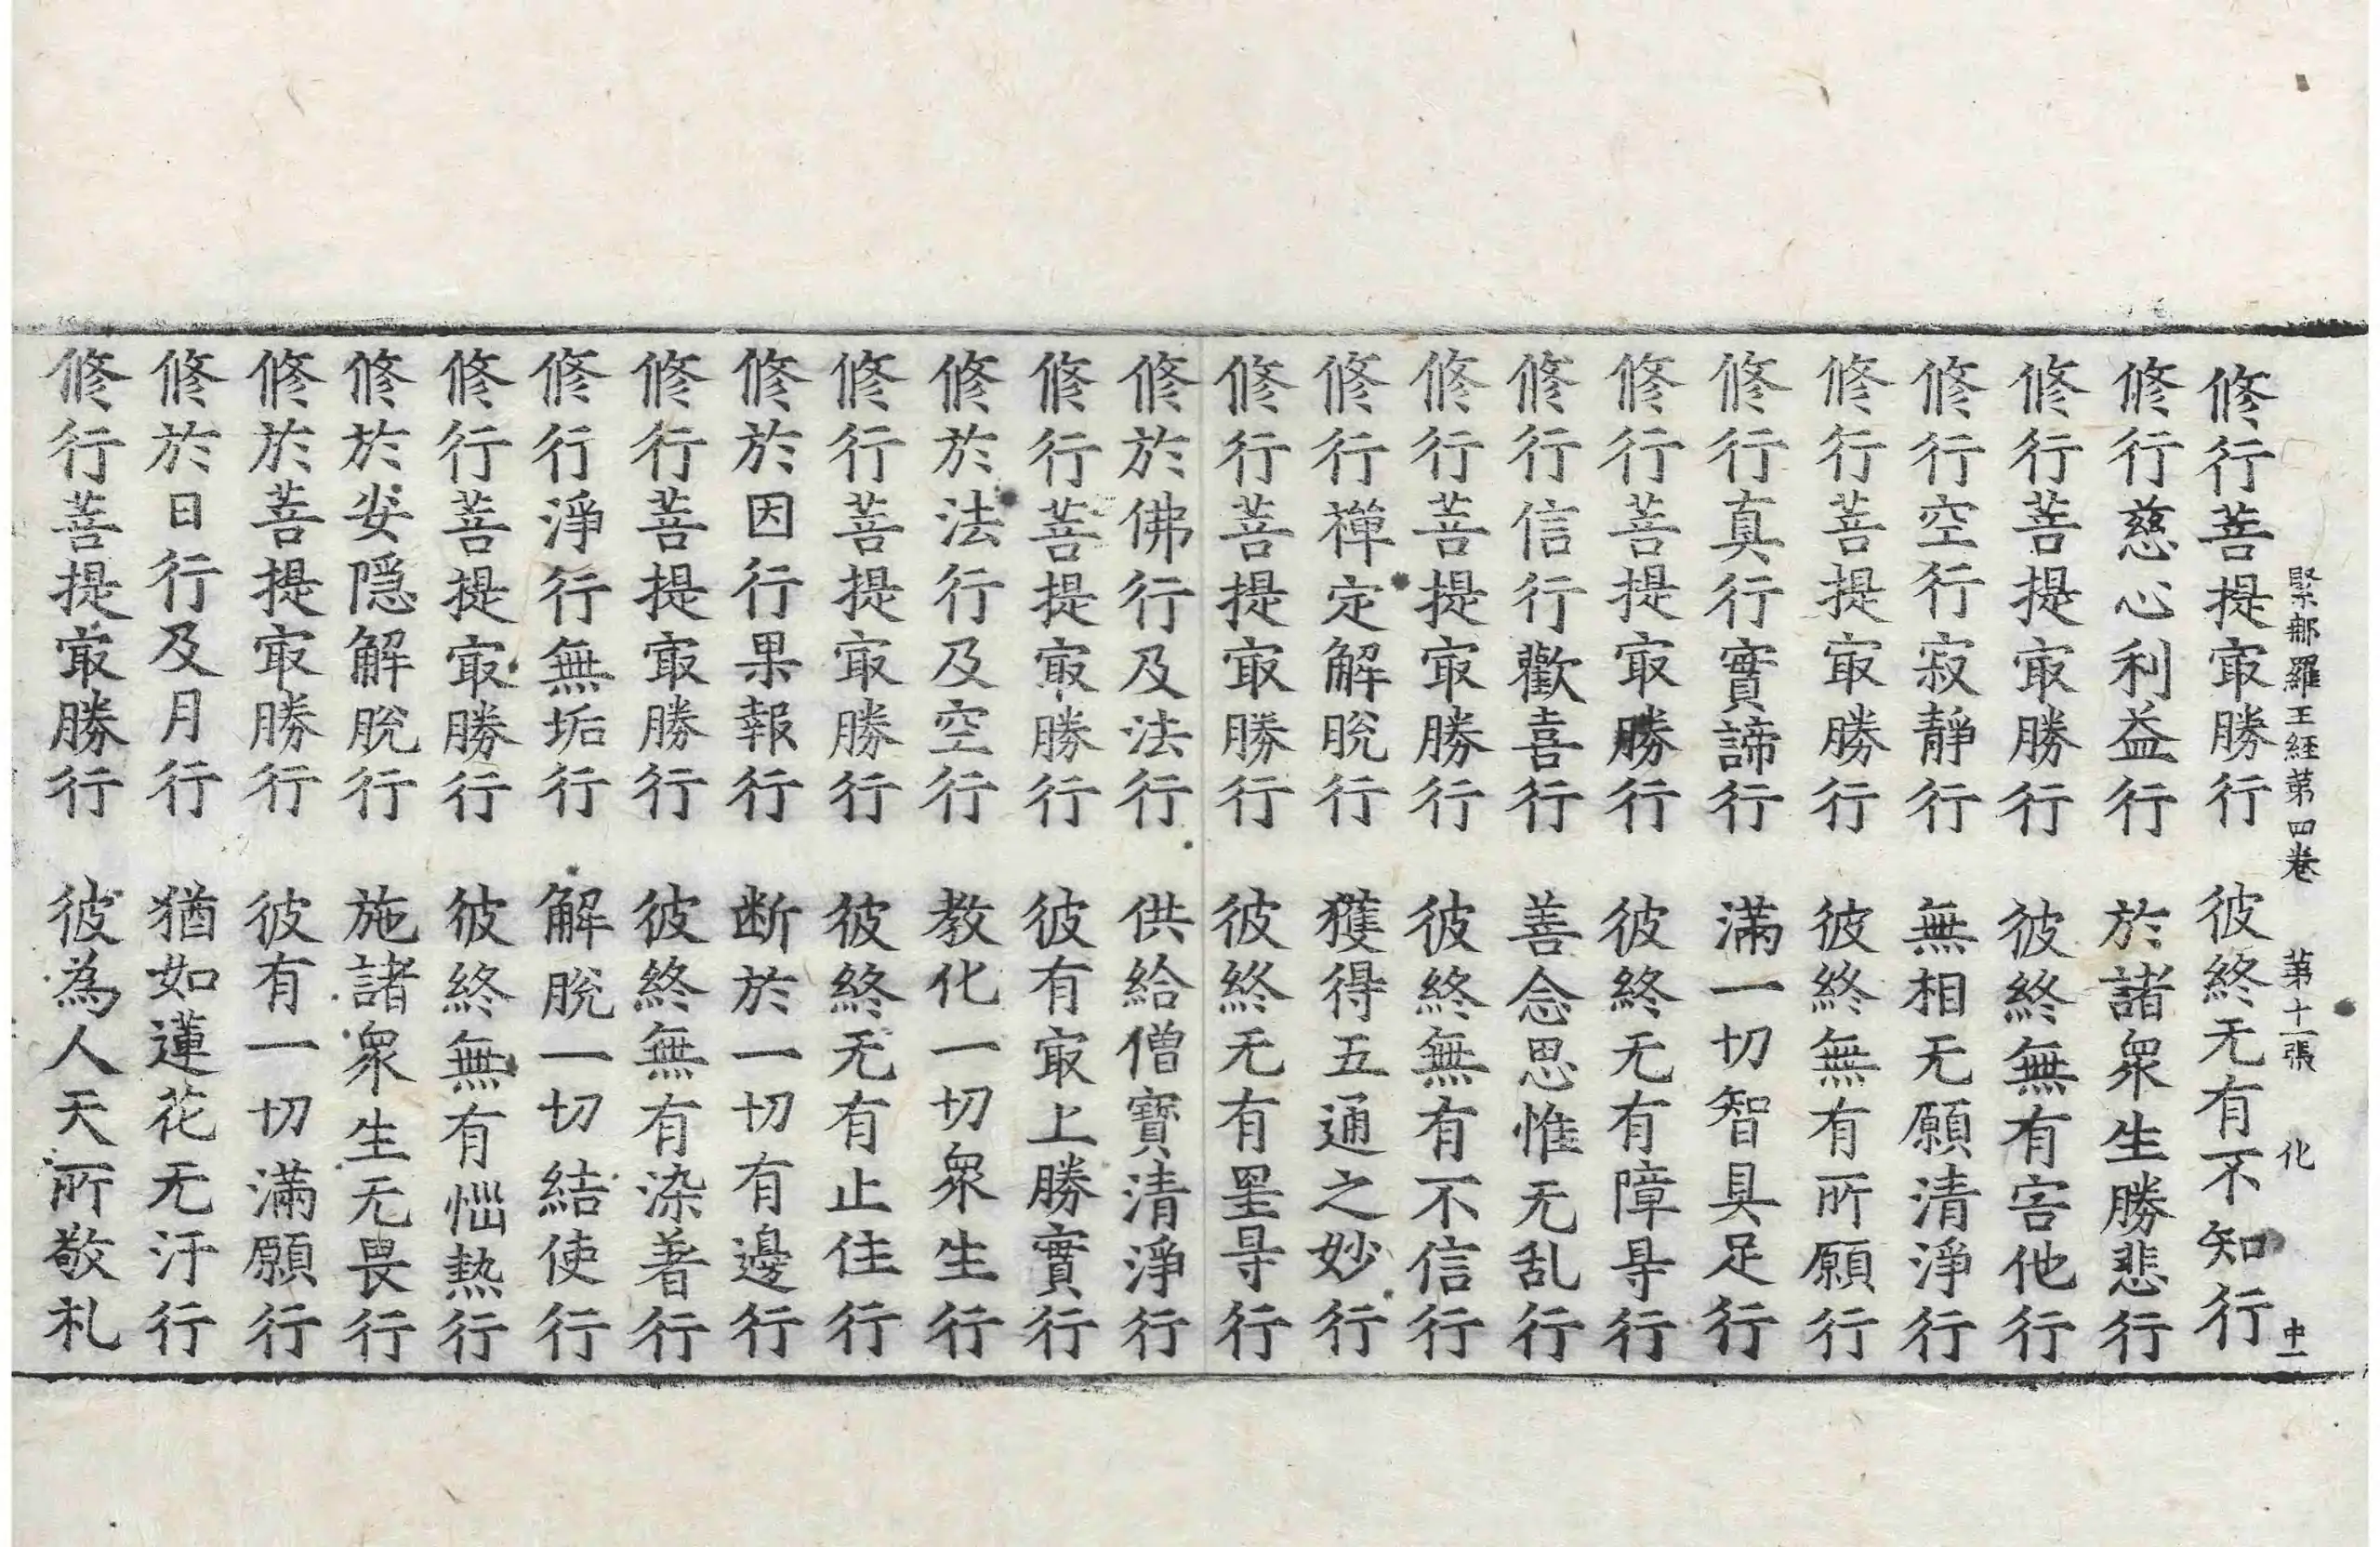 緊那羅王經第四卷　第十一張　化　中一
修行菩提㝡勝行　彼終无有不知行
修行慈心利益行　於諸衆生勝悲行
修行菩提㝡勝行　彼終無有害他行
修行空行寂靜行　無相无願清淨行
修行菩提㝡勝行　彼終無有所願行
修行真行實諦行　滿一切智具足行
修行菩提㝡勝行　彼終无有障㝵行
修行信行歡喜行　善念思惟无乱行
修行菩提㝡勝行　彼終無有不信行
修行禪定解脫行　獲得五通之妙行
修行菩提㝡勝行　彼終无有罣㝵行
修於佛行及法行　供給僧寶清淨行
修行菩提㝡勝行　彼有㝡上勝實行
修於法行及空行　教化一切衆生行
修行菩提㝡勝行　彼終无有止住行
修於因行果報行　断於一切有邊行
修行菩提㝡勝行　彼終無有染著行
修行淨行無垢行　解脫一切結使行
修行菩提㝡勝行　彼終無有惱熱行
修於安隱解脫行　施諸衆生无畏行
修於菩提㝡勝行　彼有一切滿願行
修於日行及月行　猶如蓮花无汙行
修行菩提㝡勝行　彼為人天所敬札